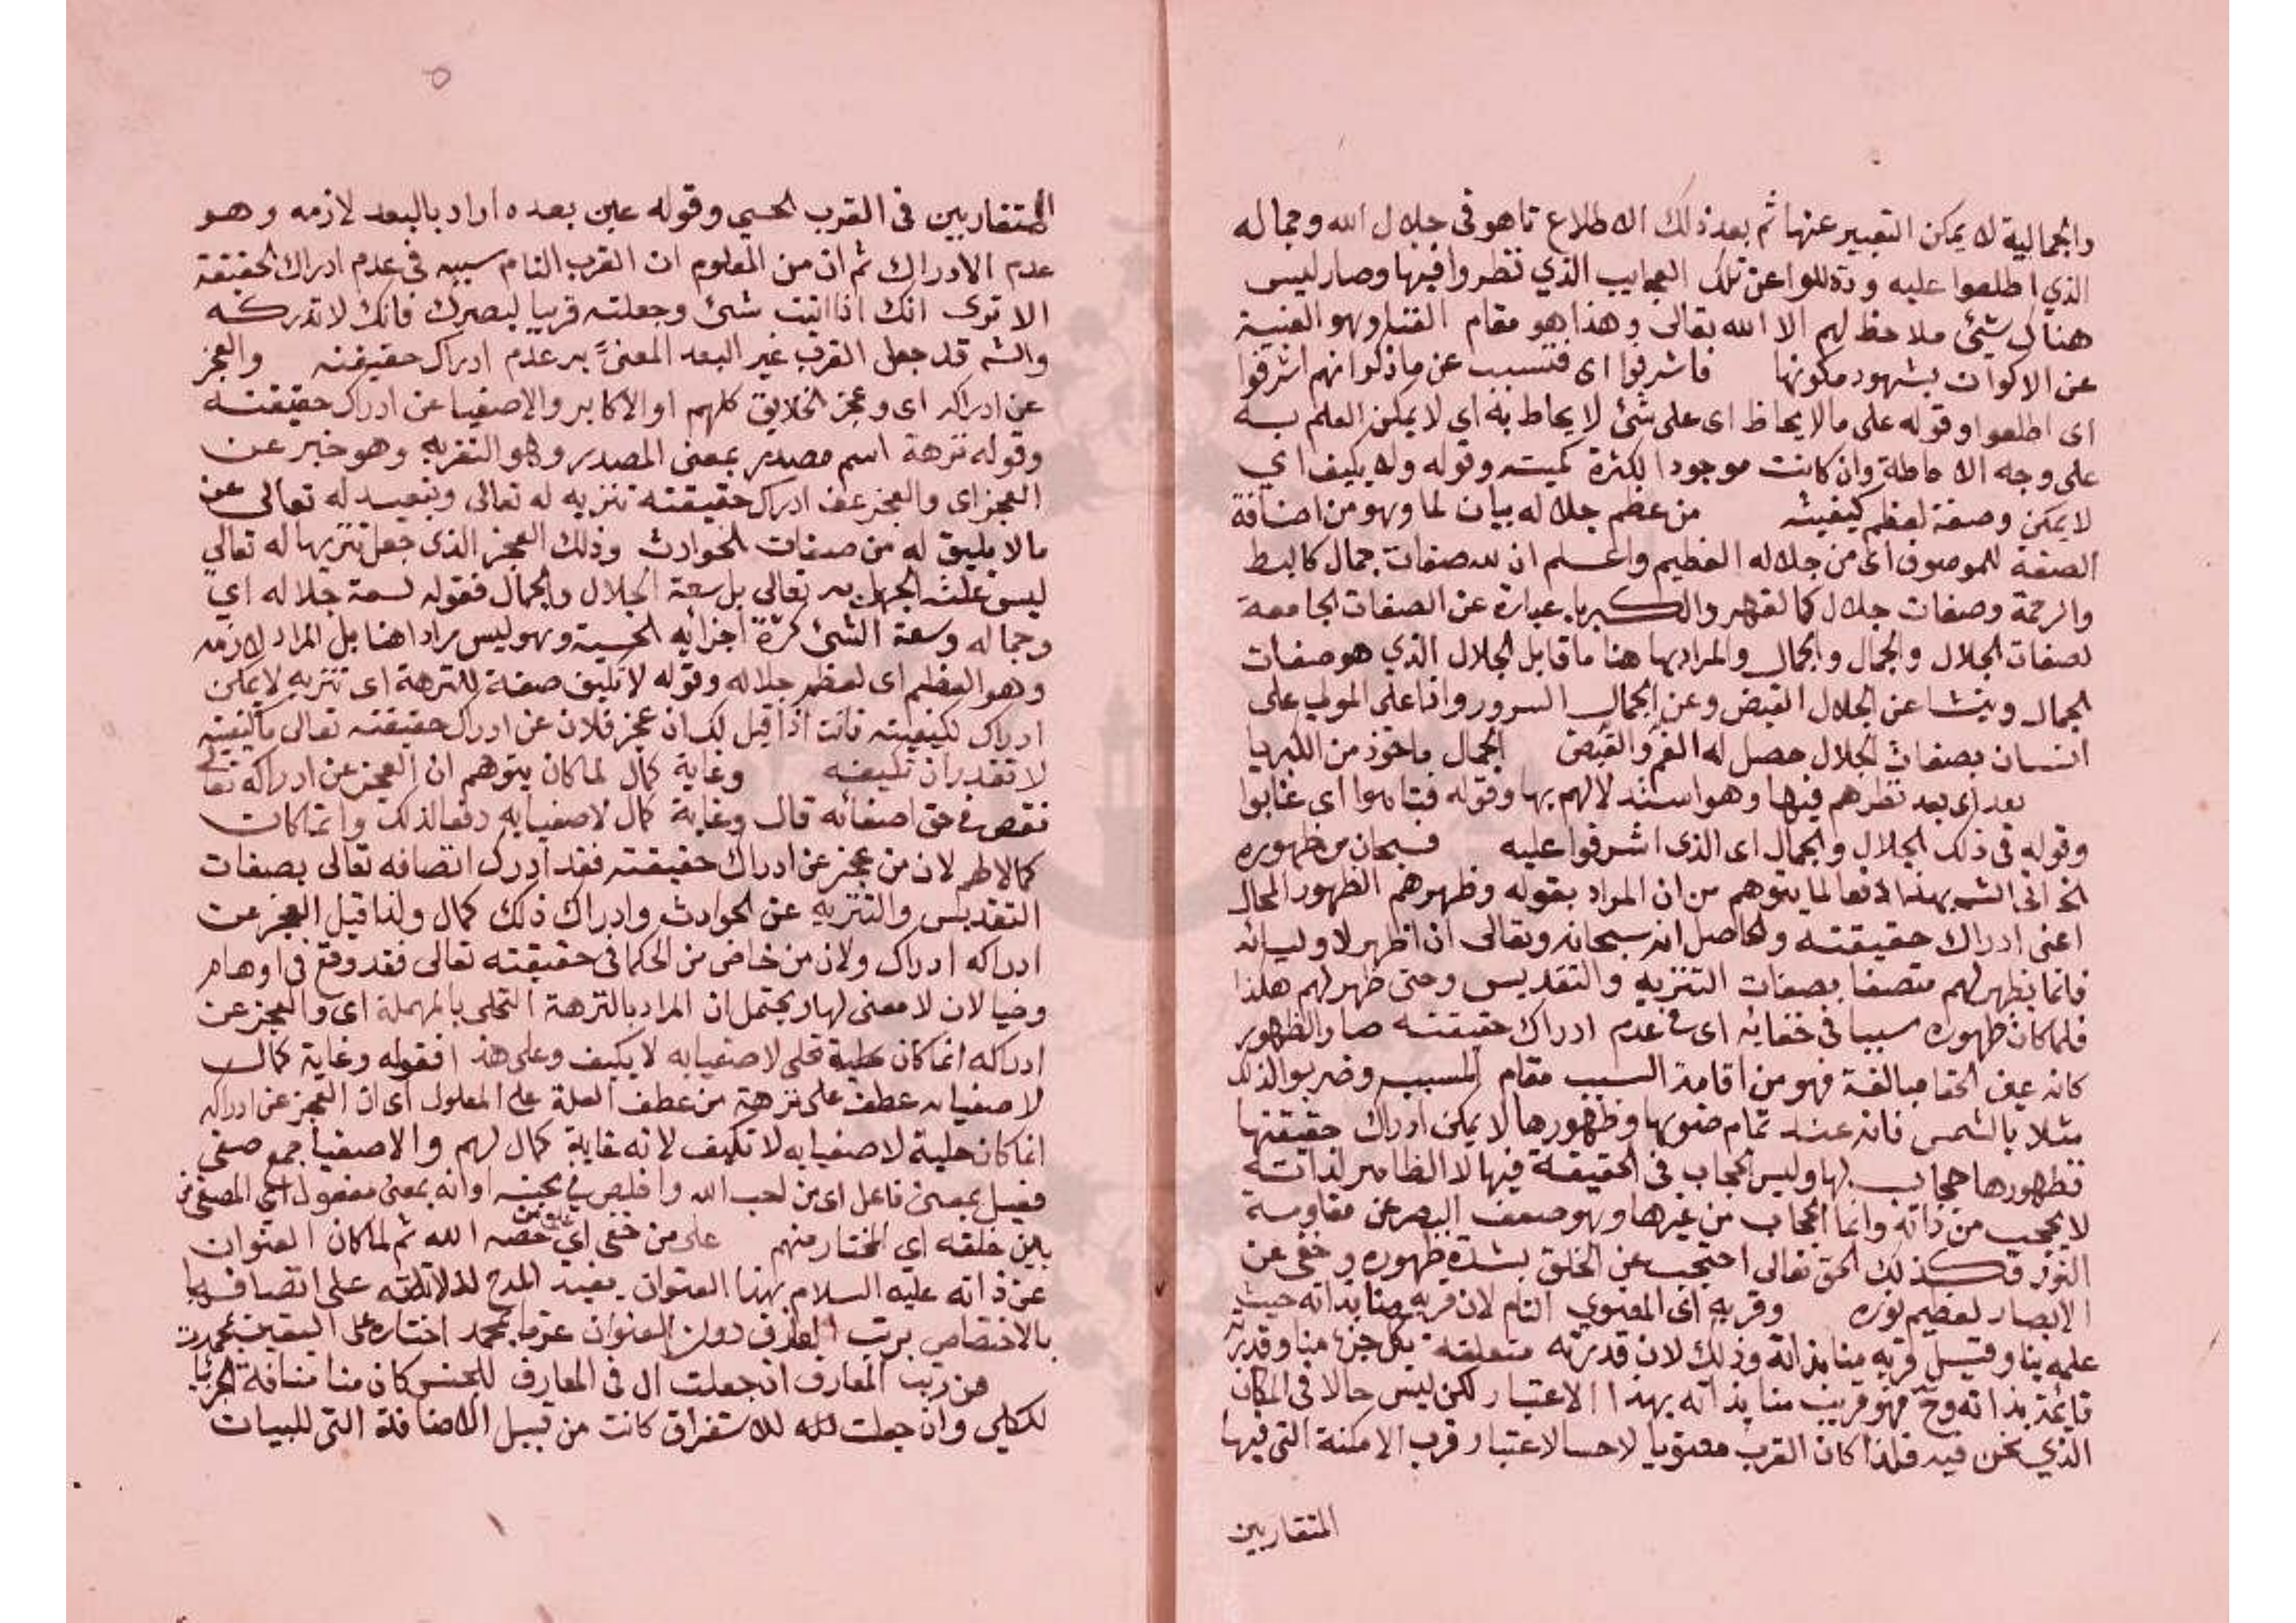 والجمالية لا يمكن التعبير عنها ثم بعد ذلك الاطلاع تاهو فى جلال الله وجماله
الذي اطلعوا عليه وذهلوا عن تلك العجايب الذي نظروا فيها وصار ليس
هناك شيئ ملاحظ لهم الا الله تعالى وهذا هو مقام الفنا وهو الغيبة
عن الاكوان بشهود مكونها فاشرفوا اى فتسبب عن ما ذكر انهم اشرفوا
اى اطلعوا وقوله على مالا يحاط اى على شئ لا يحاط به اي لا يمكن العلم به
على وجه الاحاطة وان كانت موجودا لكثرة كميته وقوله ولا يكيف اي
لا يمكن وصفه لعظم كيفيته من عظم جلاله بيان لما وهو من اضافة
الصفة للموصوف اى من جلاله العظيم واعلم ان لله صفات جمال كالبسط
والرحمة وصفات جلال كالقهر والكبريا عبارة عن الصفات الجامعة
لصفات الجلال والجمال والجمال والمراد بها هنا ما قابل الجلال الذي هو صفات
الجمال وينشا عن الجلال القبض وعن الجمال السرور واذا على المولى على
انسان بصفات الجلال حصل له الغم والقبض الجمال ماخوذ من الكبريا
بعد اى بعد نظرهم فيها وهو استدلالهم بها وقوله فتاهوا اى غابوا
وقوله فى ذلك الجلال والجمال اى الذى اشرفوا عليه فسبحان من ظهوره
الخ اتى الشه بهذا دفعا لما يتوهم من ان المراد بقوله وظهرهم الظهور المحال
اعنى ادراك حقيقته والحاصل انه سبحانه وتعالى ان اظهر لاوليائه
فانما يظهر لهم متصفا بصفات التنزيه والتقديس وحتى ظهر لهم هكذا
فلما كان ظهوره سببا فى خفائه اى فى عدم ادراك حقيقته صار الظهور
كانه عين الخفا مبالغة فهو من اقامة السبب مقام المسبب وضربوا لذلك
مثلا بالشمس فانه عند تمام ضوبها وظهورها لا يمكن ادراك حقيقتها
فظهورها حجاب لها وليس الحجاب فى الحقيقة فيها لا الظاهر لذاته
لا يحجب من ذاته وانما الحجاب من غيرها وهو ضعف البصر عن مقاومة
النور فكذلك الحق تعالى احتجب عن الخلق بشدة ظهوره وخفى عن
الابصار لعظيم نوره وقربه اى المعنوي التام لان قربه منا بذاته حيث
علمه بنا وقيل قربه منا بذاته وذلك لان قدرته متعلقة بكل جزء منا وقدرته
قائمة بذاته وح فهو قريب منا بذاته بهذا الاعتبار لكن ليس حالا فى المكان
الذي نحن فيه فلذا كان القرب معنويا لا حسا لاعتبار قرب الامكنة التى فيها
المتقاربين
المتقاربين فى القرب الحسي وقوله عين بعده اراد بالبعد لازمه وهو
عدم الادراك ثم ان من المعلوم ان القرب التام سببه فى عدم ادراك الحقيقة
الا ترى انك اذا اتيت شئ وجعلته قريبا لبصرك فانك لا تدركه
والشه قد جعل القرب غير البعد المعنى به عدم ادراك حقيقته والعجز
عن ادراكه اى وعجز الخلايق كلهم او الاكابر والاصفيا عن ادراك حقيقته
وقوله نزهة اسم مصدر بمعنى المصدر وهو التنزيه وهو خبر عن
العجز اى والعجز عن ادراك حقيقته تنزيه له تعالى وتبعيد له تعالى عن
مالا يليق له من صفات الحوادث وذلك العجز الذى جعل تنزيها له تعالى
ليس علته الجهل به تعالى بل سعة الجلال والجمال فقوله لسعة جلاله اي
وجماله وسعة الشئ كثرة اجزائه الحسية وهو ليس مرادا هنا بل المراد لازمه
وهو العظم اى لعظم جلاله وقوله لا تكيف صفة للنزهة اى تنزيه لا يمكن
ادراك لكيفيته فانت اذا قيل لك ان عجز فلان عن ادراك حقيقته تعالى ما كيفيته
لا تقدر ان تكيفه وغاية كمال لما كان يتوهم ان العجز عن ادراكه تعالى
نقص فى حق اصفائه قال وغاية كمال لاصفيايه دفعا لذلك وانما كان
كمالا لهم لان من عجز عن ادراك حقيقته فقد ادرك اتصافه تعالى بصفات
التقديس والتنزيه عن الحوادث وادراك ذلك كمال ولذا قيل العجز عن
ادراكه ادراك ولان من خاض من الحكما فى حقيقته تعالى فقد وقع فى اوهام
وخيالان لا معنى لها ويحتمل ان المراد بالنزهة التحلى بالمهملة اى والعجز عن
ادراكه انما كان حلية تحلى لاصفيايه لا يكيف وعلى هذا فقوله وغاية كمال
لاصفيايه عطف على نزهة من عطف العلة على المعلول اى ان العجز عن ادراكه
انما كان حلية لاصفيايه لا تكيف لانه غاية كمال لهم والاصفيا جمع صفى
فعيل بمعنى فاعل اى من احب الله واخلص فى محبته او انه بمعنى مفعول اى المصفى من
بين خلقه اي المختار منهم على من خص اي خصه الله ثم لما كان العنوان
عن ذاته عليه السلام بهذا العنوان يفيد المدح لدلالته على اتصافه
بالاختصاص برتب المعارف دون العنوان عرفا بمحمد اختاره على التعبير بمحمد
من رتب المعارف ان جعلت ال فى المعارف للجنس كان منا منافة الجزئيا
للكلي وان جعلت لله للاستغراق كانت من قبيل الاضافة التى للبيان